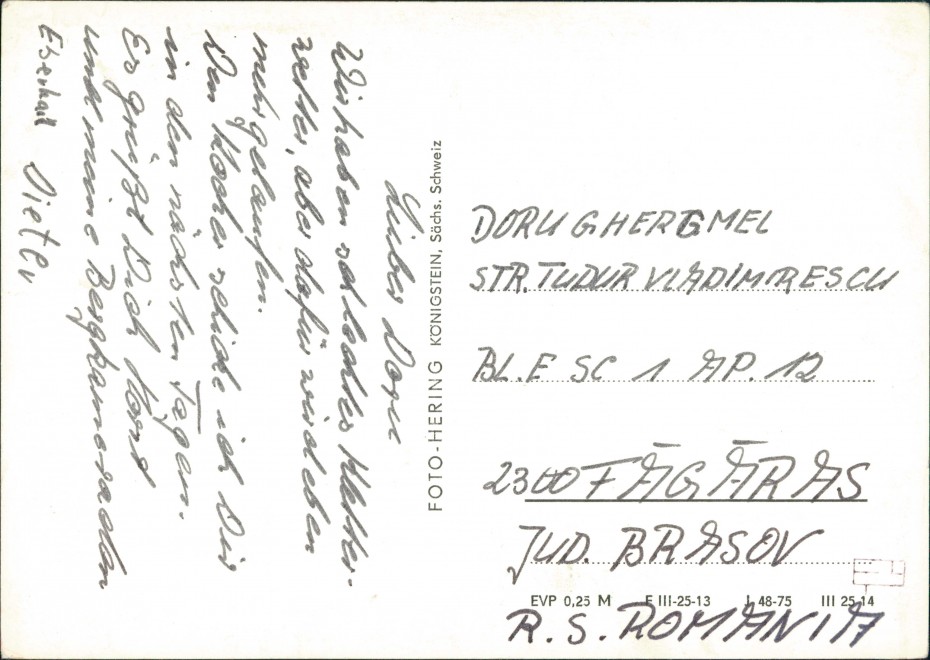 Lieber Doru
Wir haben schlechtes Kletter-
wetter, aber dafür wird eben
mehr gelaufen.
Den Kocher schicke ich Dir
in den nächsten Tagen.
Es grüßt Dich Horst
und meine Bergkameraden
Eberhard Dieter
FOTO-HERING KÖNIGSTEIN, Sächs. Schweiz
DORU GHERGMEL
STR. TUDUR VLADIMIRESCU
BL. E SC 1 AP. 12
2300 FĀGĀRAS
JUD. BRASOV
EVP 0,25 M F III-25-13 J 48-75 III 25-14
R. S. ROMANIA